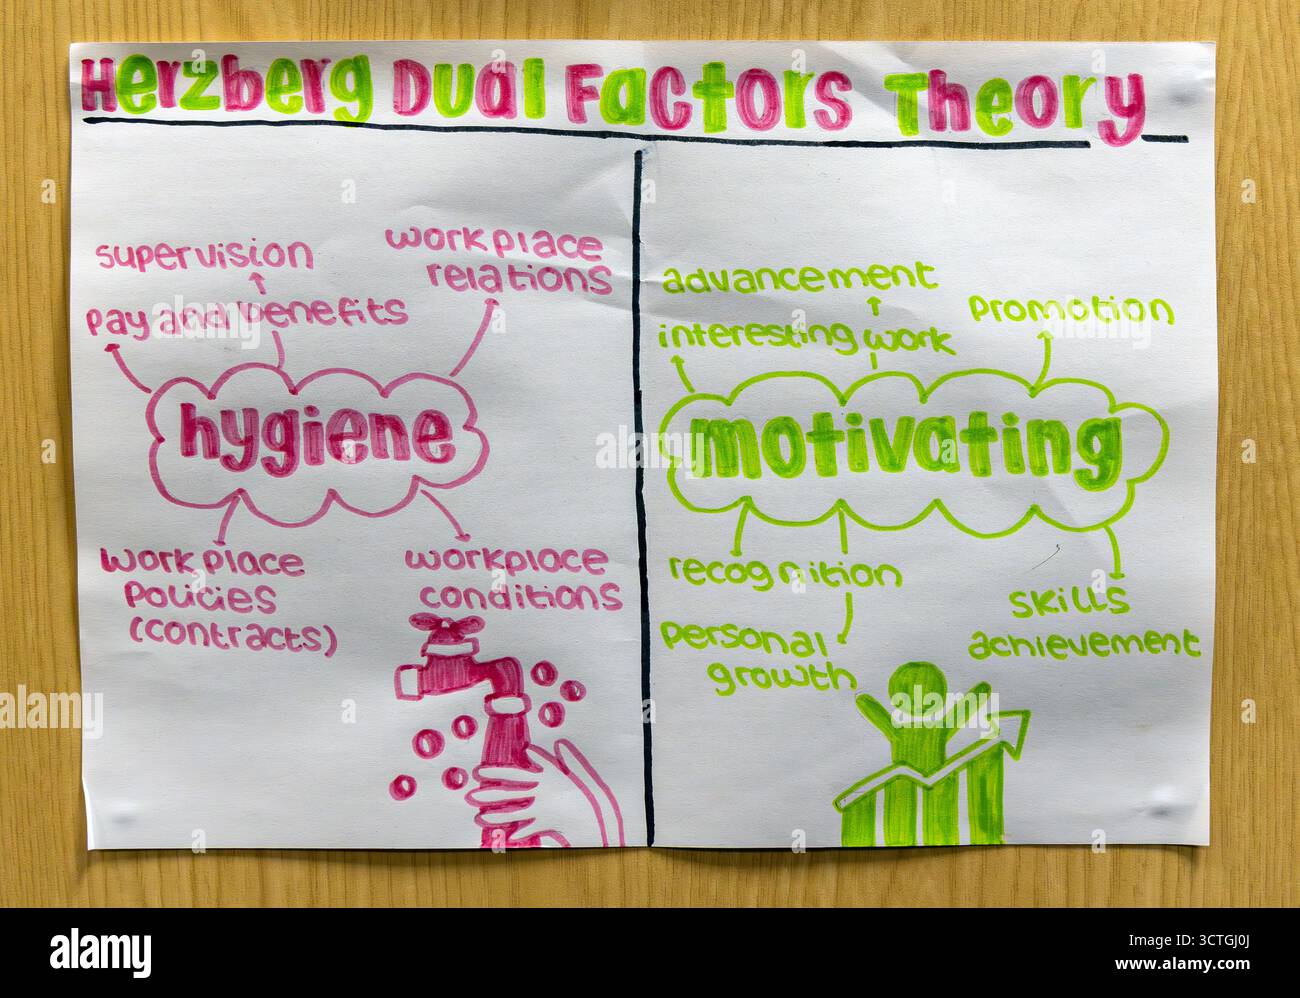 Herzberg Dual Factors Theory
supervision
workplace
relations
pay and benefits
hygiene
workplace
policies
(contracts)
workplace
conditions
advancement
promotion
interesting work
motivating
recognition
personal
growth
skills
achievement
alamy
Image ID: 3CTGJ0J
www.alamy.com